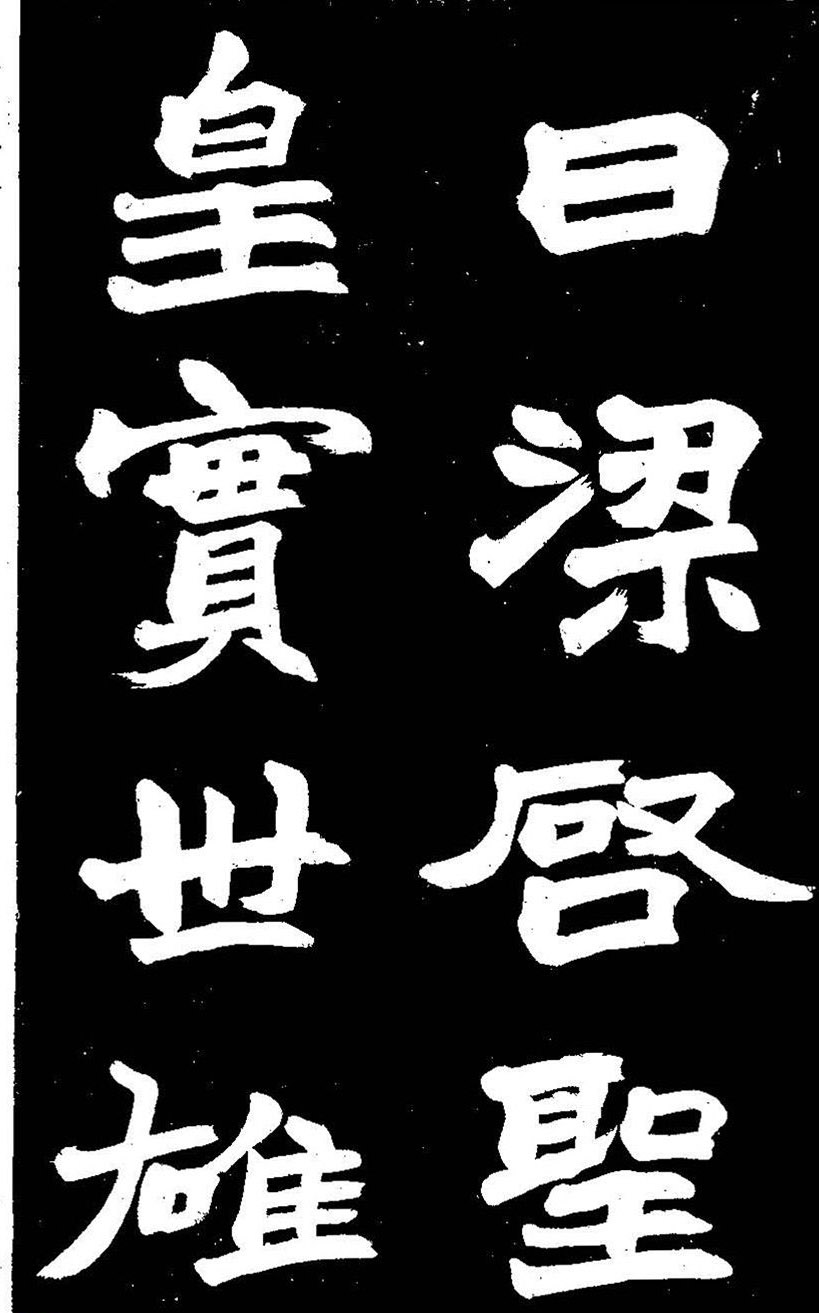 曰梁啓聖
皇實世雄